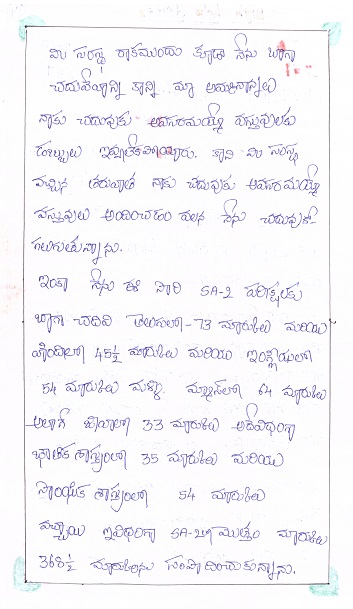 మీ సంస్థ రాకముందు కూడా నేను బాగా
చదువేదాన్ని కాని మా అమ్మానాన్నలు
నాకు చదువుకు అవసరమయ్యే వస్తువులకు
డబ్బులు ఇవ్వలేకపోయారు. కాని మీ సంస్థ
వచ్చిన తరువాత నాకు చదువుకు అవసరమయ్యే
వస్తువులు అందించడం వలన నేను చదువుకో-
గలుగుతున్నాను.
ఇంకా నేను ఈ సారి SA-2 పరీక్షలకు
బాగా చదివి తెలుగులో - 73 మార్కులు మరియు
హిందీలో 45½ మార్కులు మరియు ఇంగ్లీషులో
54 మార్కులు మళ్ళీ మ్యాథ్స్‌లో 64 మార్కులు
అలాగే బయోలో 33 మార్కులు అదేవిధంగా
భౌతిక శాస్త్రంలో 35 మార్కులు మరియు
సాంఘిక శాస్త్రంలో 54 మార్కులు
వచ్చాయి ఇవిధంగా SA-2లో మొత్తం మార్కులు
368½ మార్కులను సంపాదించుకున్నాను.